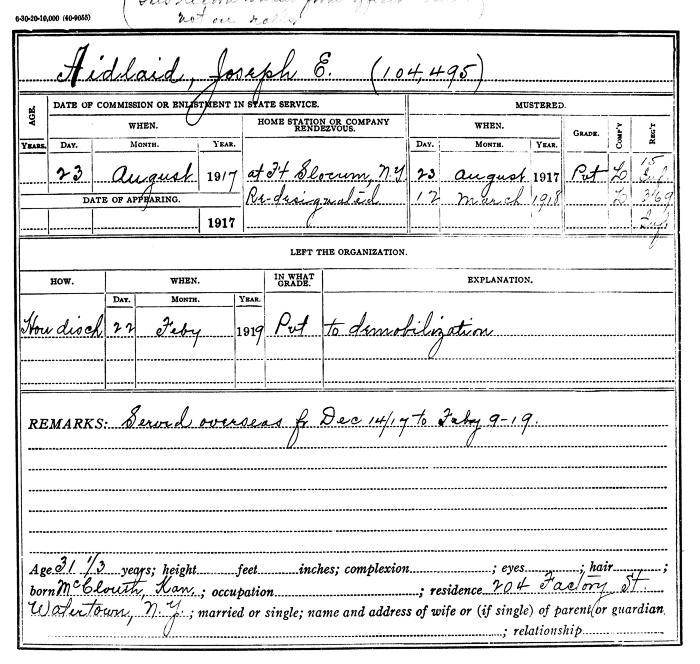 6-30-20-10,000 (40-9055)
not our
Aidlaid, Joseph E. (104,495)
AGE. DATE OF COMMISSION OR ENLISTMENT IN STATE SERVICE. MUSTERED.
WHEN. HOME STATION OR COMPANY RENDEZVOUS. WHEN. GRADE. COMP'Y REG'T
YEARS. DAY. MONTH. YEAR. DAY. MONTH. YEAR.
23 August 1917 at Ft Slocum, N.Y 23 August 1917 Pvt L 15 Inf
DATE OF APPEARING. Re-designated 12 March 1918 L 369 Inf
1917
LEFT THE ORGANIZATION.
HOW. WHEN. IN WHAT GRADE. EXPLANATION.
DAY. MONTH. YEAR.
Hon disch 22 Feby 1919 Pvt to demobilization
REMARKS: Served overseas fr Dec 14/17 to Feby 9-19.
Age 31 1/3 years; height feet inches; complexion ; eyes ; hair ;
born McClouth, Kan. ; occupation ; residence 204 Factory St
Watertown, N.Y. ; married or single; name and address of wife or (if single) of parent or guardian
; relationship